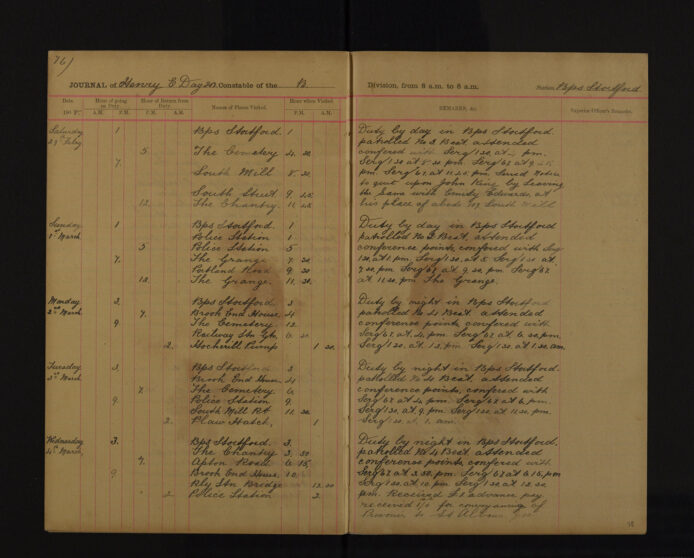 76)
JOURNAL of Henry E Day 203. Constable of the B Division, from 8 a.m. to 6 a.m. Station Bps Stortford
Date Hour of going on Duty. Hour of Return from Duty. Names of Places Visited. Hour when Visited. REMARKS, &c. Superior Officer's Remarks.
A.M. P.M. P.M. A.M. P.M. A.M.
Saturday 1 Bps Stortford 1
5 The Cemetery 4 30
7 South Mill 8 30
South Street 9 25
12 The Chantry 11 25
Duty by day in Bps Stortford
patrolled No 2 Beat attended
confered with Serg 130 at pm.
Serg 130 at 8.30 pm. Serg 62 at 9.25
pm. Serg 62 at 11.25 pm. Served Notice
to quit upon John King by leaving
the same with Emily Edwards at
his place of abode South Mill
Sunday 1 Bps Stortford 1
1st March Police Station 1
5 Police Station 5
7 The Grange 7 30
Portland Road 9 30
The Grange 11 30
Duty by day in Bps Stortford
patrolled No 2 Beat, attended
conference points, confered with Serg
130 at 1 pm. Serg 130 at 5 Serg 130 at
7.30 pm Serg 62 at 9.30 pm Serg 62
at 11.30 pm The Grange.
Monday 3. Bps Stortford 3
2nd March 7. Brook End House 4
9. The Cemetery
Railway Stn 6
2. Hockerill Pump 1 30
Duty by night in Bps Stortford
patrolled No 4 Beat. attended
conference points confered with
Serg 62 at 4 pm. Serg 62 at 6.30 pm.
Serg 130 at 12 pm Serg 130 at 1.30 am.
Tuesday 3. Bps Stortford 3
3rd March Brook End House 4
7. The Cemetery 6
9. Police Station 9
South Mill Rd 11 30
2 Plaw Hatch, 1
Duty by night in Bps Stortford.
patrolled No 4 Beat. attended
conference points, confered with
Serg 62 at 4 pm. Serg 62 at 6 pm.
Serg 130, at 9. pm. Serg 130 at 11.30 pm.
Serg 130 at 1 am.
Wednesday 3. Bps Stortford. 3.
4th March, The Chantry 3. 50
7. Apton Road 6 15
9 Brook End House. 10
Rly Stn Bridge 12 20
2 Police Station 2
Duty by night in Bps Stortford.
patrolled No 4 Beat attended
conference points confered with
Serg 62 at 3.50 pm. Serg 62 at 6.15 pm,
Serg 130 at 10 pm Serg 130 at 12.20
pm. Received £1 advance pay
received for conveyancing of
Prisoner to St Albans